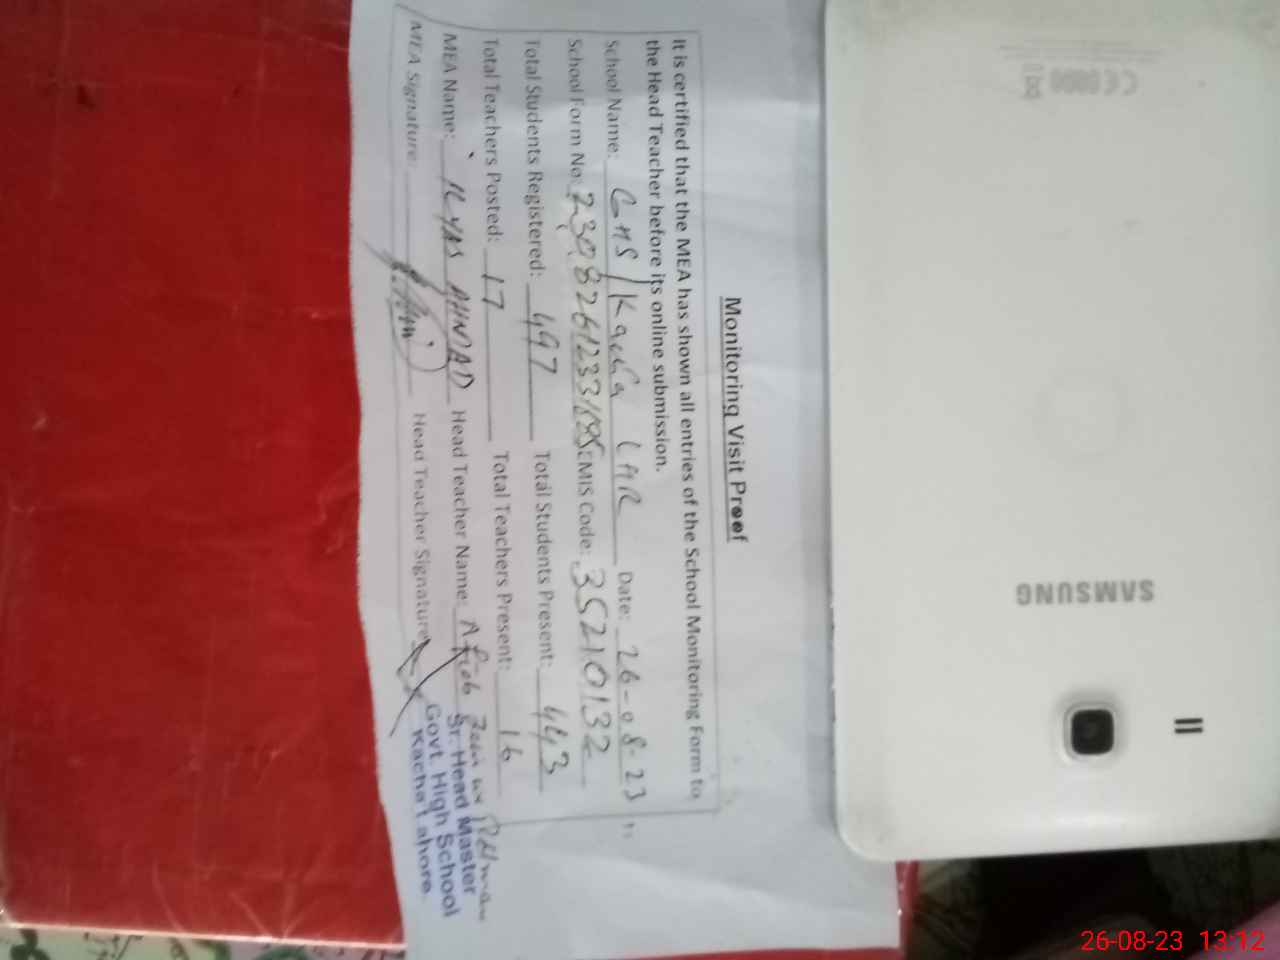 Monitoring Visit Proof
It is certified that the MEA has shown all entries of the School Monitoring Form to
the Head Teacher before its online submission.
School Name: GHS Kacha LHR Date: 26-08-23
School Form No: EMIS Code: 35210132
Total Students Registered: 497 Total Students Present: 443
Total Teachers Posted: 17 Total Teachers Present: 16
MEA Name: ILYAS AHMAD Head Teacher Name:
MEA Signature: Head Teacher Signature
Sr. Head Master
Govt. High School
Kacha Lahore.
SAMSUNG
26-08-23 13:12